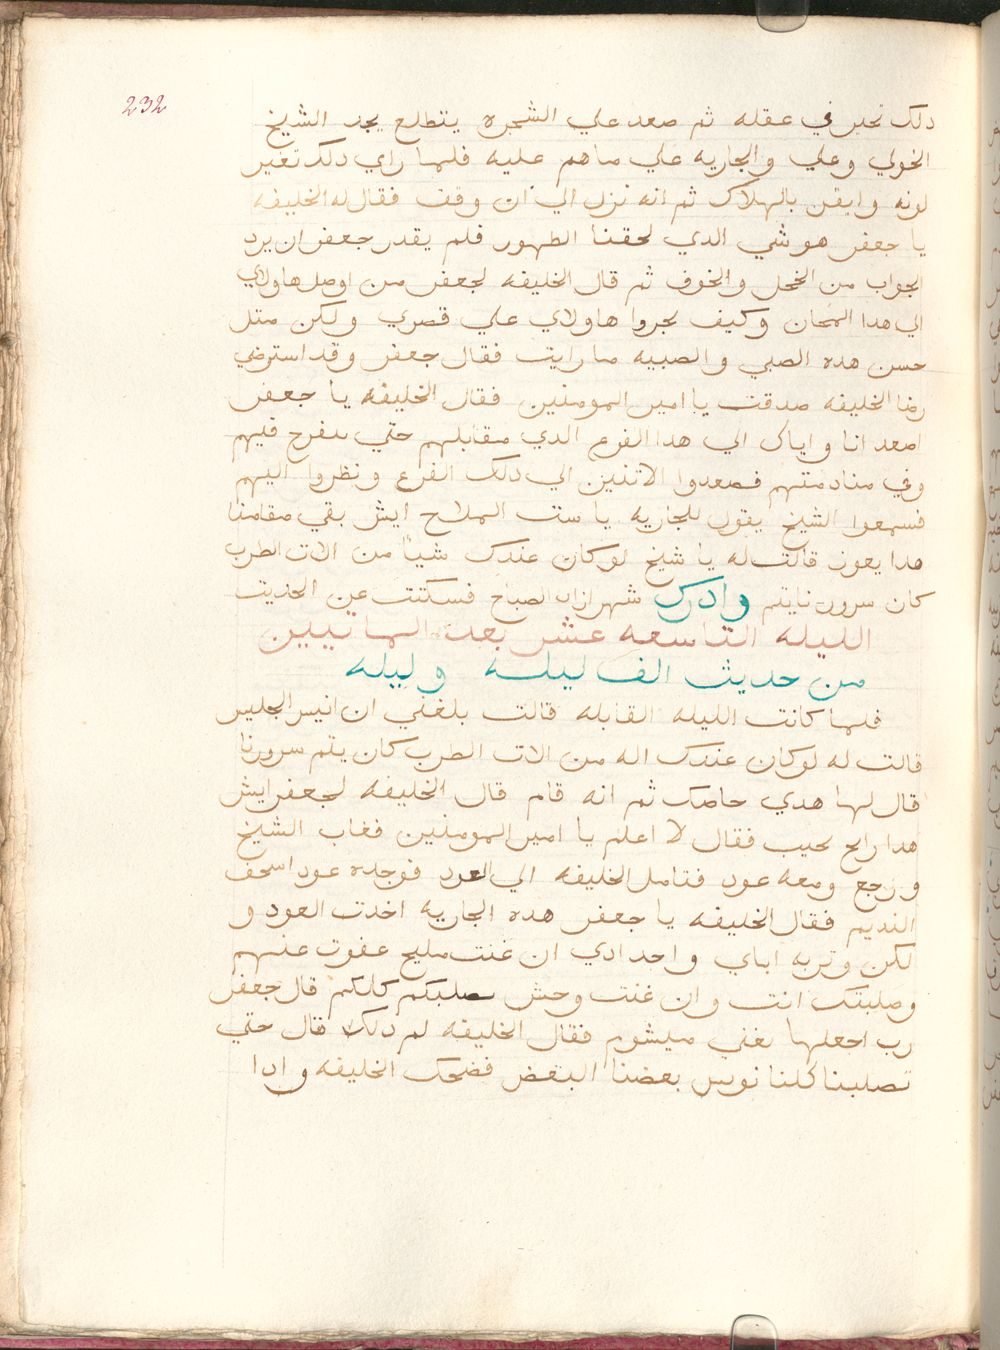 232
دلك تحير في عقله ثم صعد علي الشجره يتطلع يجد الشيخ
الخولي وعلي والجاريه علي ما هم عليه فلما راي دلك تغير
لونه وايقن بالهلاك ثم انه نزل الي ان وقف فقال له الخليفه
يا جعفر هو شي الدي لحقنا الطهور فلم يقدر جعفر ان يرد
الجواب من الخجل والخوف ثم قال الخليفه لجعفر من اوصل هاولاي
الي هدا المكان وكيف تجروا هاولاي علي قصري ولكن متل
حسن هده الصبي والصبيه ما رايت فقال جعفر وقد استرضي
رضا الخليفه صدقت يا امير المومنين فقال الخليفه يا جعفر
اصعد انا واياك الي هدا الفرع الدي مقابلهم حتي نتفرج فيهم
وفي منادمتهم فصعدوا الاتنين الي دلك الفرع ونظروا اليهم
فسمعوا الشيخ يقول للجاريه يا ست الملاح ايش بقي مقامنا
هدا يعوز قالت له يا شيخ لو كان عندك شيا من الات الطرب
كان سرورنا يتم وادرك شهرازاد الصباح فسكتت عن الحديث
الليله التاسعه عشر بعد الماتيين
من حديث الف ليله وليله
فلما كانت الليله القابله قالت بلغني ان انيس الجليس
قالت له لو كان عندك اله من الات الطرب كان يتم سرورنا
قال لها هدي حاضك ثم انه قام قال الخليفه لجعفر ايش
هدا رايح يجيب فقال لا اعلم يا امير المومنين فغاب الشيخ
ورجع ومعه عود فتامل الخليفه الي العود فوجده عود اسحق
النديم فقال الخليفه يا جعفر هده الجاريه اخدت العود و
لكن وتربه اباي واجدادي ان غنت مليح عفوت عنهم
وصلبتك انت وان غنت وحش صلبكم كلكم قال جعفر
رب اجعلها تغني ميشوم فقال الخليفه لم دلك قال حتي
تصلبنا كلنا نونس بعضنا البعض فضحك الخليفه وادا